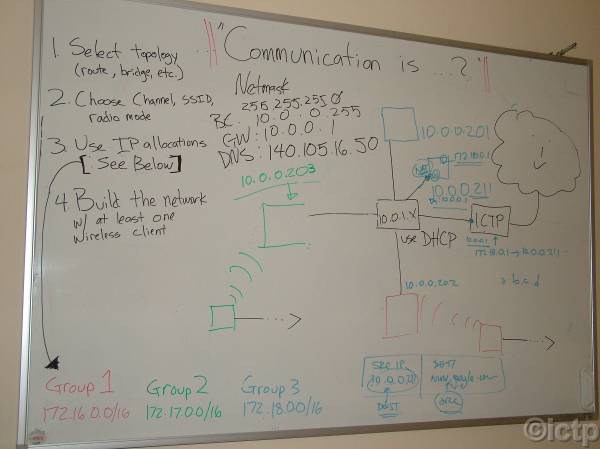 "Communication is ...?"
1. Select topology
(route, bridge, etc.)
2. Choose Channel, SSID,
radio mode
3. Use IP allocations
[See Below]
4. Build the network
w/ at least one
wireless client
Netmask
255.255.255.0
BC: 10.0.0.255
GW: 10.0.0.1
DNS: 140.105.16.50
10.0.0.203
10.0.0.201
172.18.0.1
10.0.0.211
10.0.1.X
use DHCP
ICTP
10.0.0.202
Group 1
172.16.0.0/16
Group 2
172.17.0.0/16
Group 3
172.18.0.0/16
SRC IP
10.0.0.211
DEST
DEST
SRC
©ictp